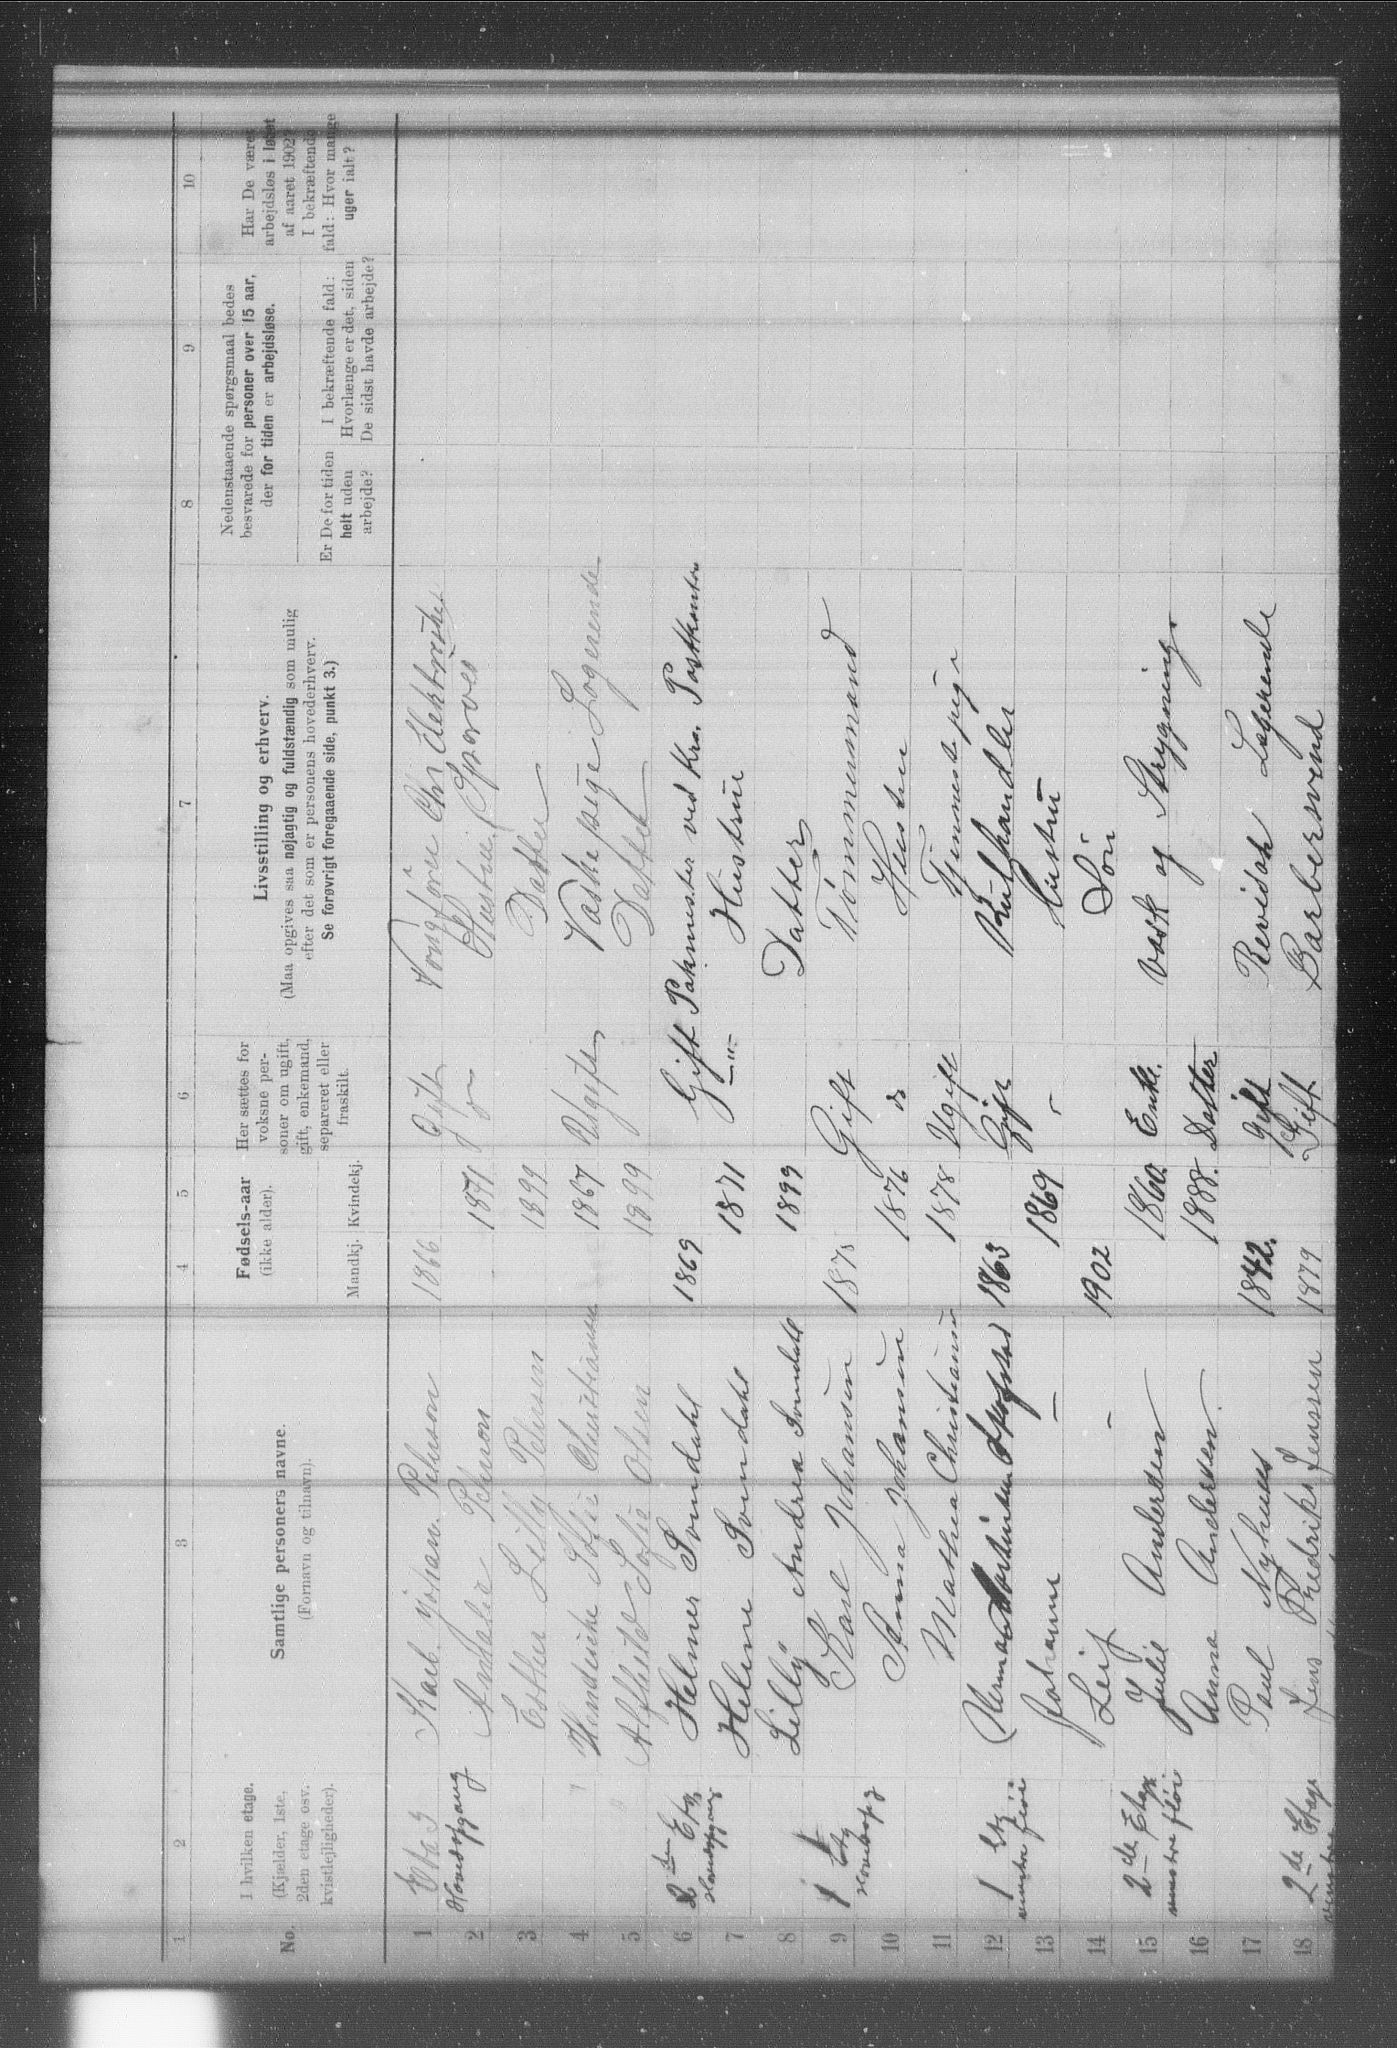 1 2 3 4 5 6 7 8 9 10
No.
I hvilken etage.
(Kjælder, 1ste,
2den etage osv.
kvistlejligheder).
Samtlige personers navne.
(Fornavn og tilnavn).
Fødsels-aar
(ikke alder).
Mandkj. Kvindekj.
Her sættes for
voksne per-
soner om ugift,
gift, enkemand,
separeret eller
fraskilt.
Livsstilling og erhverv.
(Maa opgives saa nøjagtig og fuldstændig som mulig
efter det som er personens hovederhverv.
Se forøvrigt foregaaende side, punkt 3.)
Nedenstaaende spørgsmaal bedes
besvarede for personer over 15 aar,
der for tiden er arbejdsløse.
Er De for tiden
helt uden
arbejde?
I bekræftende fald:
Hvorlænge er det, siden
De sidst havde arbejde?
Har De været
arbejdsløs i løbet
af aaret 1902?
I bekræftende
fald: Hvor mange
uger ialt?
1 Eta 3 Karl Johan Peterson 1866 Gift
2 Hovedopgang Peterson 1871 Do Hustru
3 Esther Lilly Peterson 1899 Datter
4 Hendrikke Sofie Christiansen 1867 Ugift Vaskepige Logerende
5 Alfhild Sofie Olsen 1899 Datter
6 2den Etg Helmer Sondahl 1869 Gift Pakmester ved Kra. Postkontor
7 Hovedopgang Helene Sondahl 1871 -"- Hustrue
8 Lilly Andrea Sondahl 1899 Datter
9 1 Etg Karl Johansen Gift Tømmermand
10 Anna Johansen 1876 do Hustru
11 Mathea Christiansen 1878 Ugift Tjenestepige
12 1 Etg Herman 1863 Gift Kulhandler
13 venstre fløi Johanne — 1869 Hustru
14 Leif - 1902 Søn
15 2-de Etage Julie Andersen 1860. Enke. Vask og Strygning.
16 venstre fløi Anna Andersen. 1888. Datter
17 Paul Nyhuus 1842. Gift Revisor Logerende
18 2-de Etage Jens Fredrik Jenssen 1879 Gift Barbersvend
venstre